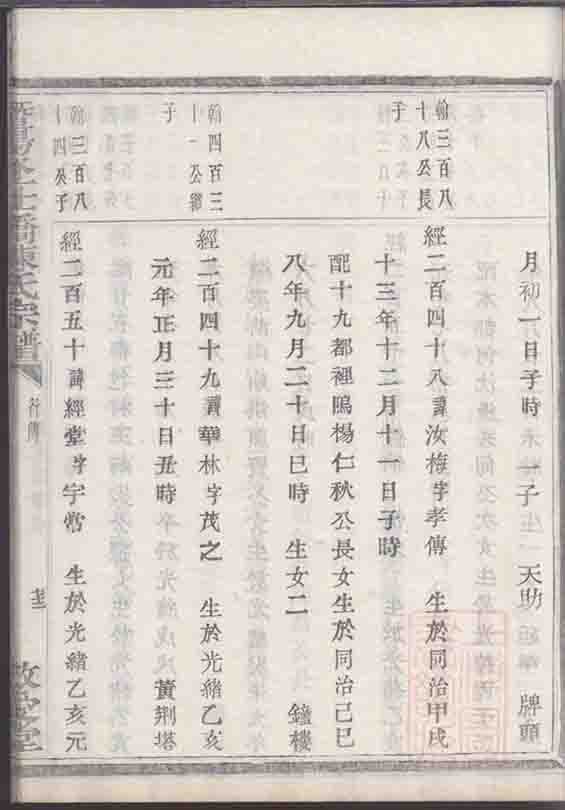 月初一日子時 一子 天助 牌頭
翰三百八
十八公長
子
經二百四十八諱汝梅字孝傳 生於同治甲戌
十三年十二月十一日子時
配十九都裡鳴楊仁秋公長女生於同治己巳
八年九月二十日巳時 生女二 鐘樓
翰四百三
十一公繼
子
經二百四十九諱華林字茂之 生於光緒乙亥
元年正月三十日丑時 黃荆塔
翰三百八
十四公子
經二百五十諱經堂字宇常 生於光緒乙亥元
陳氏宗譜
行傳
敬堂